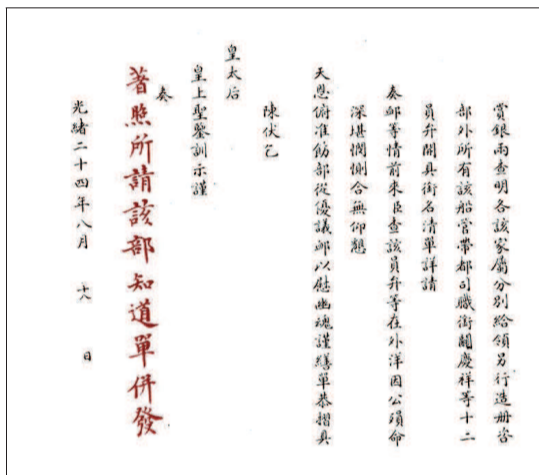 賞銀兩查明各該家屬分別給領另行造册咨
部外所有該船管帶都司職銜關慶祥等十二
員弁開具銜名清單詳請
奏卹等情前來臣查該員弁等在外洋因公殞命
深堪憫惻合無仰懇
天恩俯准飭部從優議卹以慰幽魂謹繕單恭摺具
陳伏乞
皇太后
皇上聖鑒訓示謹
奏
著照所請該部知道單併發
光緒二十四年八月 十八 日